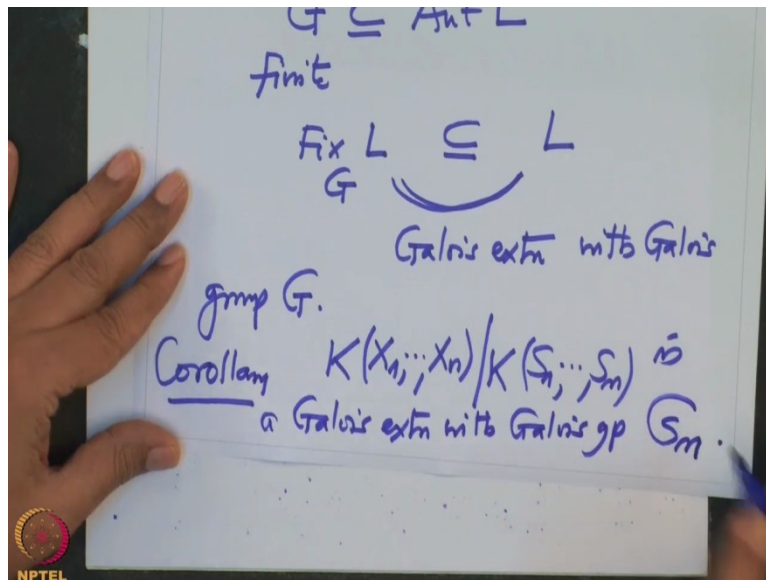 G ⊆ Aut L
finite
Fix L ⊆ L
G
Galois extn with Galois
group G.
Corollary K(X₁,...,Xₙ)/K(S₁,...,Sₙ) is
a Galois extn with Galois gp Sₙ.
NPTEL